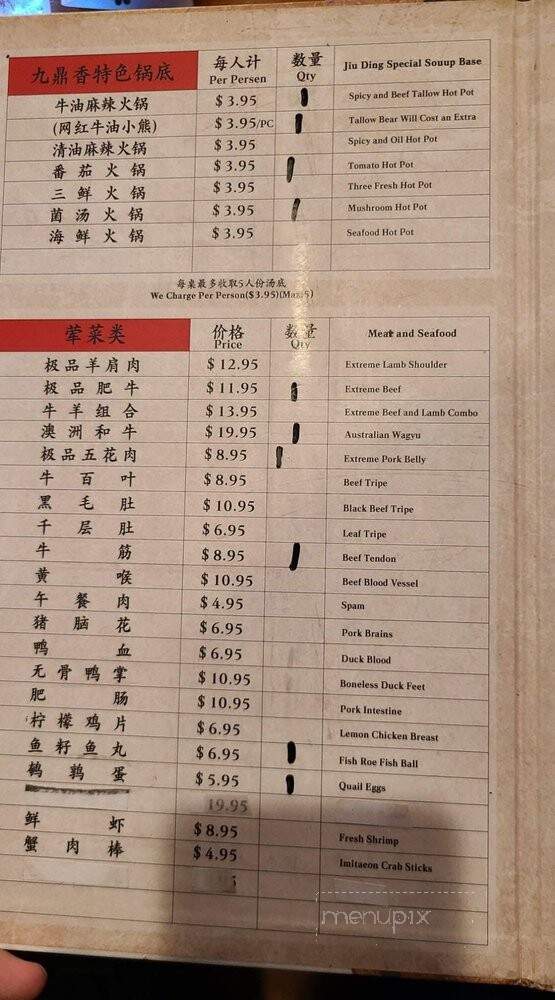 九鼎香特色锅底 每人计 Per Persen 数量 Qty Jiu Ding Special Souup Base
牛油麻辣火锅 $ 3.95 Spicy and Beef Tallow Hot Pot
(网红牛油小熊) $ 3.95/PC Tallow Bear Will Cost an Extra
清油麻辣火锅 $ 3.95 Spicy and Oil Hot Pot
番茄火锅 $ 3.95 Tomato Hot Pot
三鲜火锅 $ 3.95 Three Fresh Hot Pot
菌汤火锅 $ 3.95 Mushroom Hot Pot
海鲜火锅 $ 3.95 Seafood Hot Pot
每桌最多收取5人份汤底
We Charge Per Person($3.95)(Max:5)
荤菜类 价格 Price 数量 Qty Meat and Seafood
极品羊肩肉 $ 12.95 Extreme Lamb Shoulder
极品肥牛 $ 11.95 Extreme Beef
牛羊组合 $ 13.95 Extreme Beef and Lamb Combo
澳洲和牛 $ 19.95 Australian Wagyu
极品五花肉 $ 8.95 Extreme Pork Belly
牛百叶 $ 8.95 Beef Tripe
黑毛肚 $ 10.95 Black Beef Tripe
千层肚 $ 6.95 Leaf Tripe
牛筋 $ 8.95 Beef Tendon
黄喉 $ 10.95 Beef Blood Vessel
午餐肉 $ 4.95 Spam
猪脑花 $ 6.95 Pork Brains
鸭血 $ 6.95 Duck Blood
无骨鸭掌 $ 10.95 Boneless Duck Feet
肥肠 $ 10.95 Pork Intestine
柠檬鸡片 $ 6.95 Lemon Chicken Breast
鱼籽鱼丸 $ 6.95 Fish Roe Fish Ball
鹌鹑蛋 $ 5.95 Quail Eggs
19.95
鲜虾 $ 8.95 Fresh Shrimp
蟹肉棒 $ 4.95 Imitaeon Crab Sticks
menupix